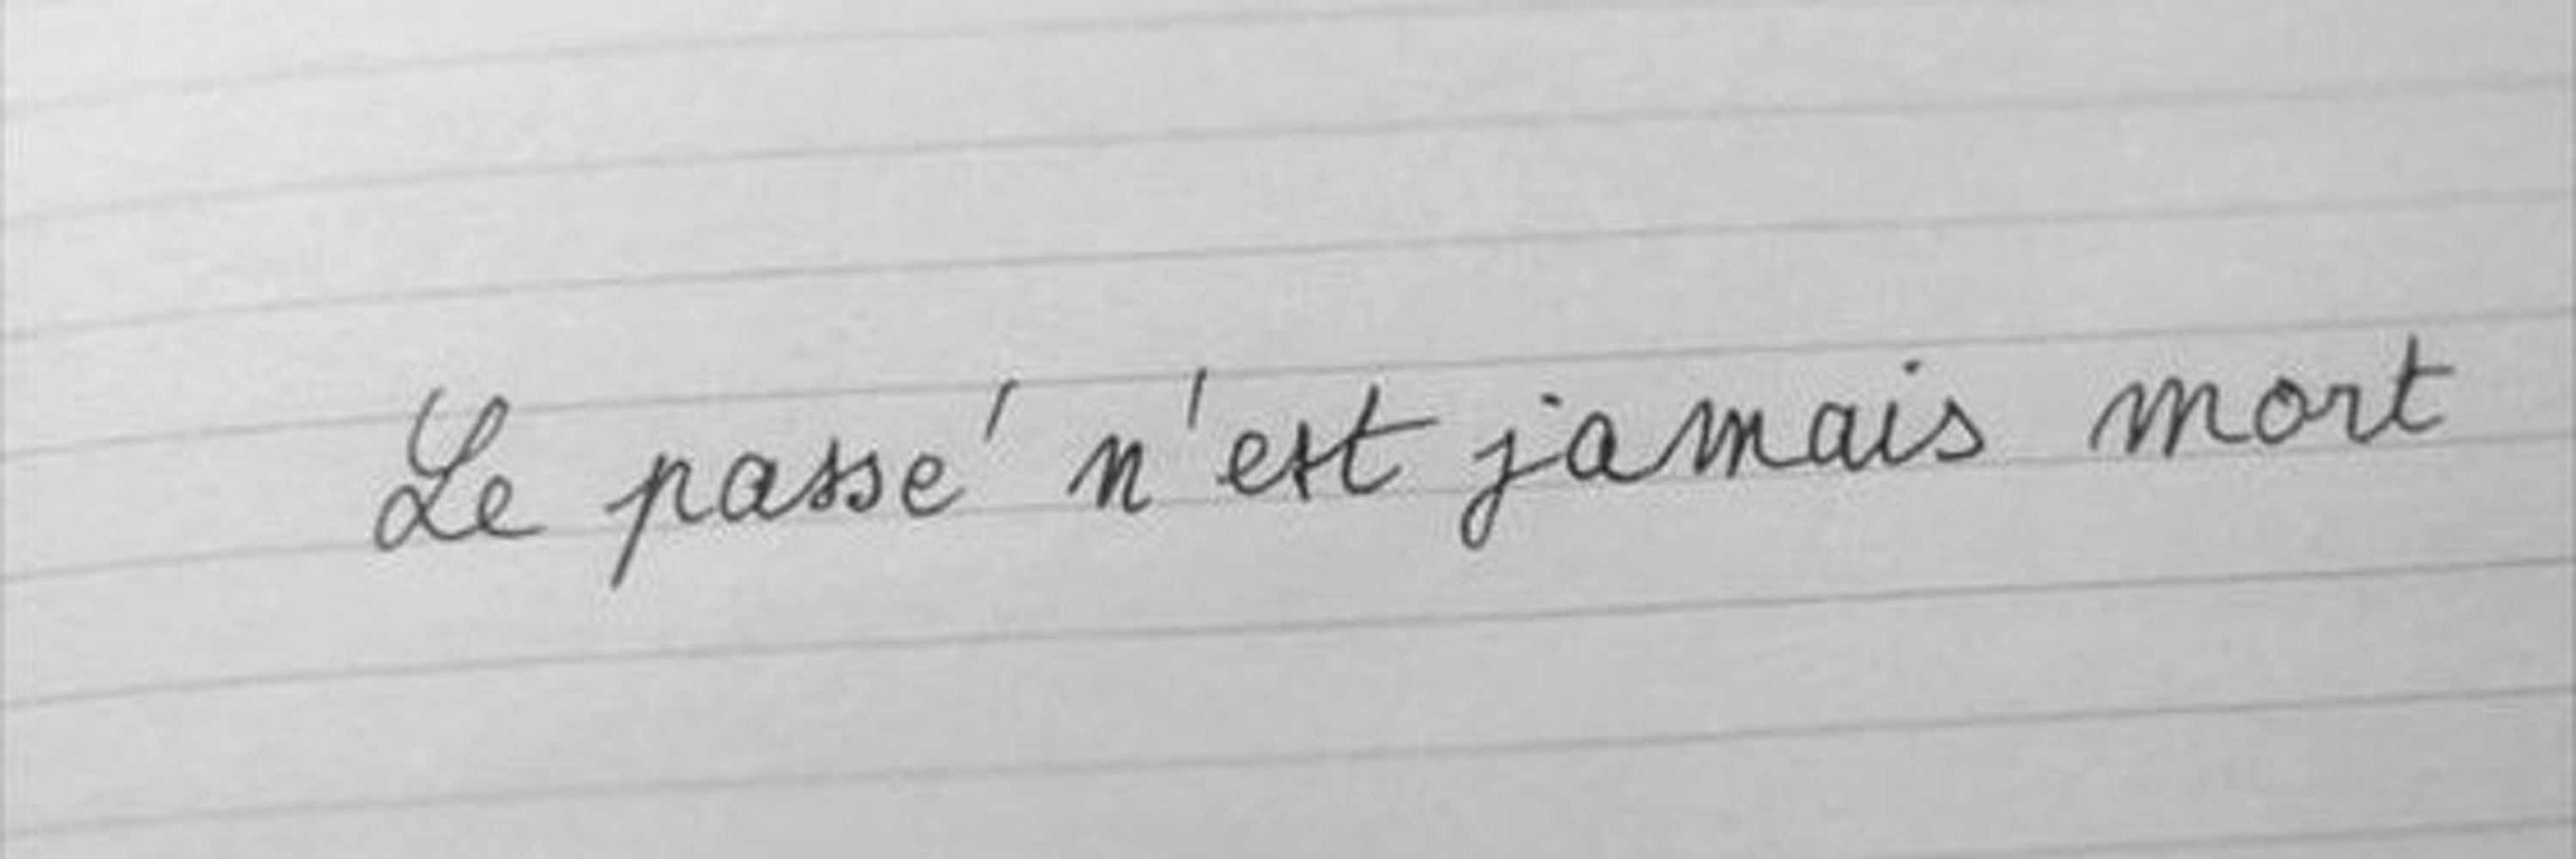 Le passé n'est jamais mort